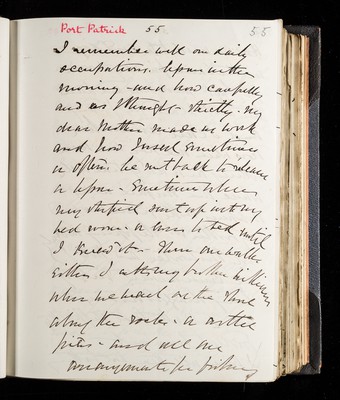 Port Patrick 55 55
I remember well our daily
occupations. Lessons in the
morning - and how carefully
and as I thought - strictly - my
dear Mother made us work
and how I used sometimes
or often be sent back to relearn
a lesson - Sometimes when
very stupid sent up into my
bed room or even to bed until
I knew it - Then our walks
either I with my brother
when we used on the shore
along the rocks - or on the
- and all our
arrangements for fishing